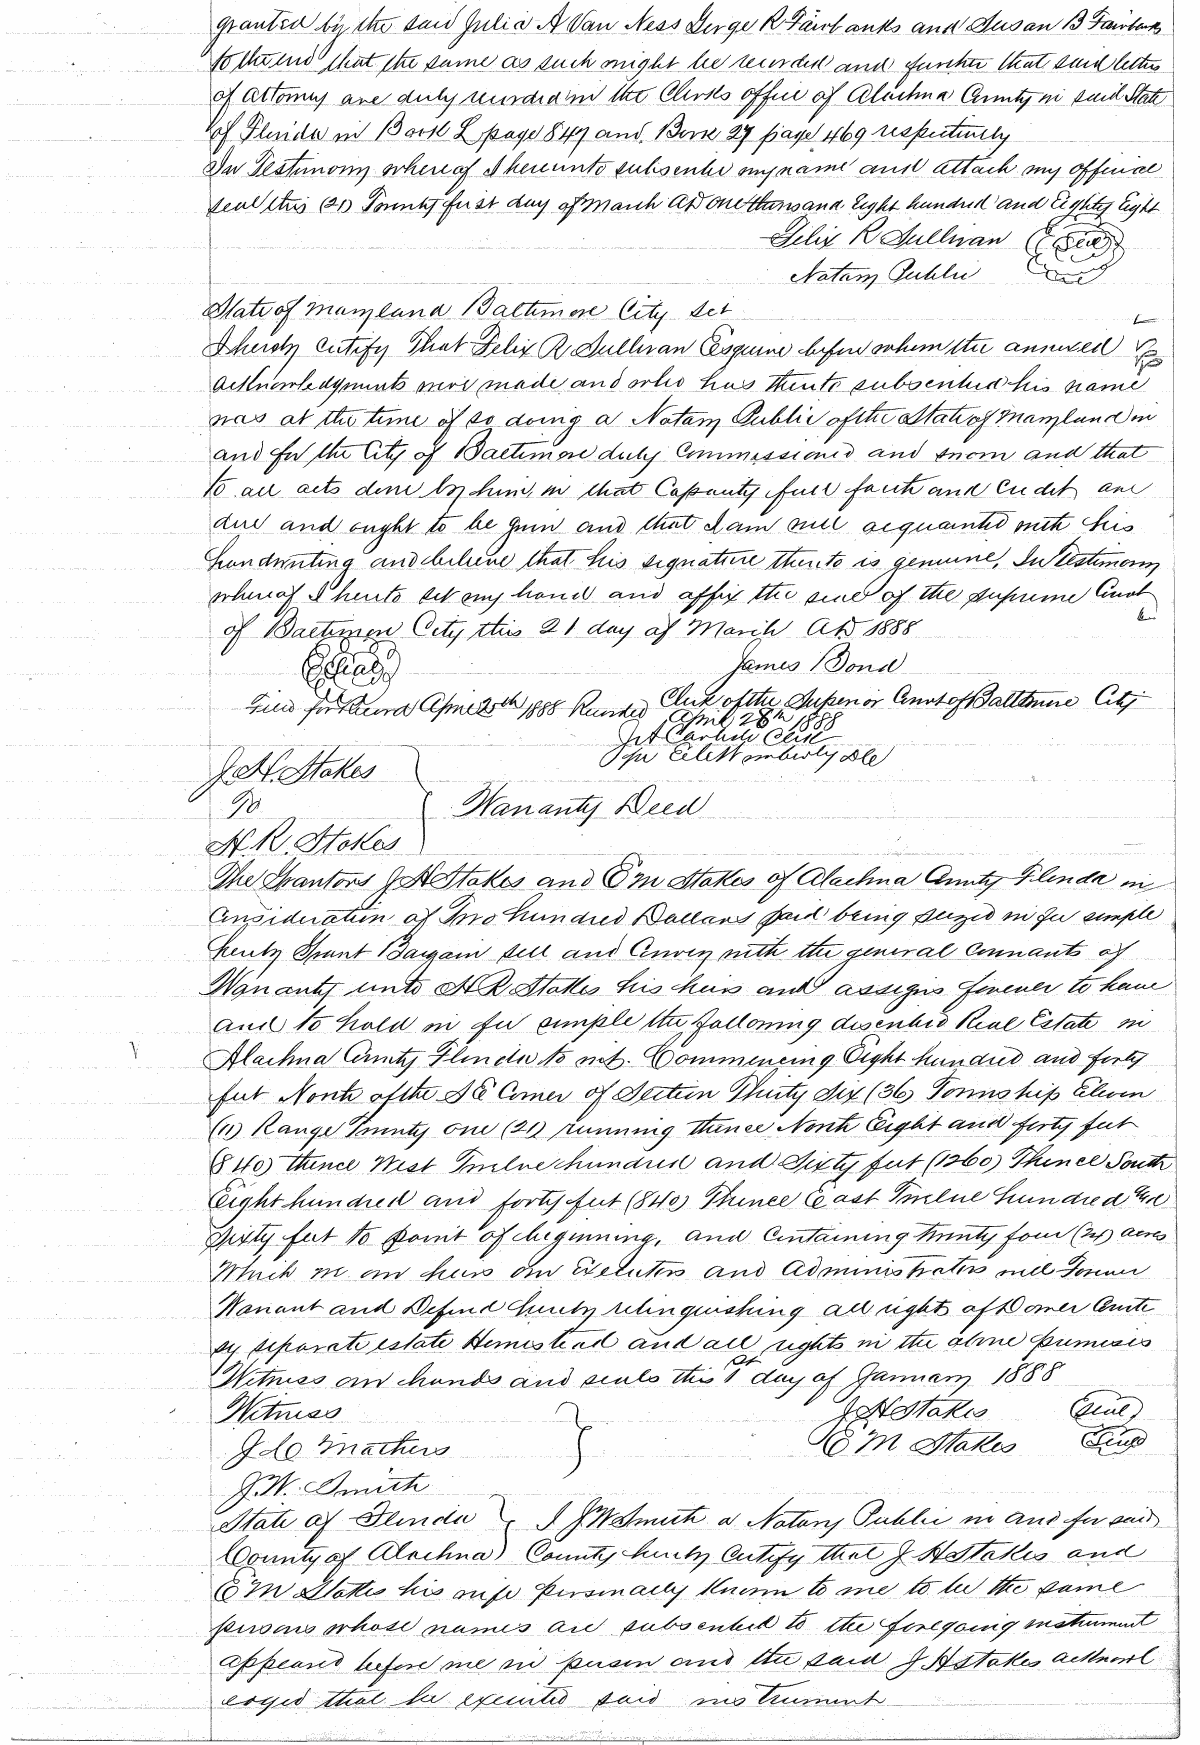 granted by the said Julia A Van Ness George R Fairbanks and Susan B Fairbanks
to the end that the same as such might be recorded and further that said letters
of attorney are duly recorded in the Clerks office of Alachua County in said State
of Florida in Book L page 847 and Book 27 page 469 respectively
In Testimony whereof I hereunto subscribe my name and attach my official
seal this (21) Twenty first day of March AD one thousand Eight hundred and Eighty Eight
Felix R Sullivan (Seal)
Notary Public
State of Maryland Baltimore City Sct
I hereby Certify That Felix R Sullivan Esquire before whom the annexed
acknowledgments were made and who has thereto subscribed his name
was at the time of so doing a Notary Public of the State of Maryland in
and for the City of Baltimore duly Commissioned and sworn and that
to all acts done by him, in that Capacity full faith and Credit are
due and ought to be given and that I am well acquainted with his
handwriting and believe that his signature thereto is genuine, In Testimony
whereof I hereto set my hand and affix the seal of the supreme Court
of Baltimore City this 21 day of March AD 1888
(Seal) James Bond
Clerk of the Superior Court of Baltimore City
Filed for Record April 20th 1888 Recorded April 28th 1888
Clerk
Per Wimberly DC
J. H. Stokes
To
Warranty Deed
H. R. Stokes
The Grantors J H Stokes and E M Stokes of Alachua County Florida in
Consideration of Two hundred Dollars paid being seized in fee simple
hereby Grant Bargain sell and Convey with the general Covenants of
Warranty unto H R Stokes his heirs and assigns forever to have
and to hold in fee simple the following described Real Estate in
Alachua County Florida to wit. Commencing Eight hundred and forty
feet North of the S E Corner of Section Thirty Six (36) Township Eleven
(11) Range Twenty one (21) running thence North Eight and forty feet
(840) thence West Twelve hundred and Sixty feet (1260) Thence South
Eight hundred and forty feet (840) Thence East Twelve hundred and
Sixty feet to point of beginning, and Containing twenty four (24) acres
Which we our heirs our Executors and Administrators will Forever
Warrant and Defend hereby relinquishing all right of Dower Curte
sy separate estate Homestead and all rights in the above premises
Witness our hands and seals this 1st day of January 1888
Witness J H Stokes (Seal)
Mathers E M Stokes (Seal)
J. W. Smith
State of Florida I J W Smith a Notary Public in and for said
County of Alachua) County hereby Certify that J H Stokes and
E M Stokes his wife personally Known to me to be the same
persons whose names are subscribed to the foregoing instrument
appeared before me in person and the said J H Stokes acknowl
edged that he executed said instrument